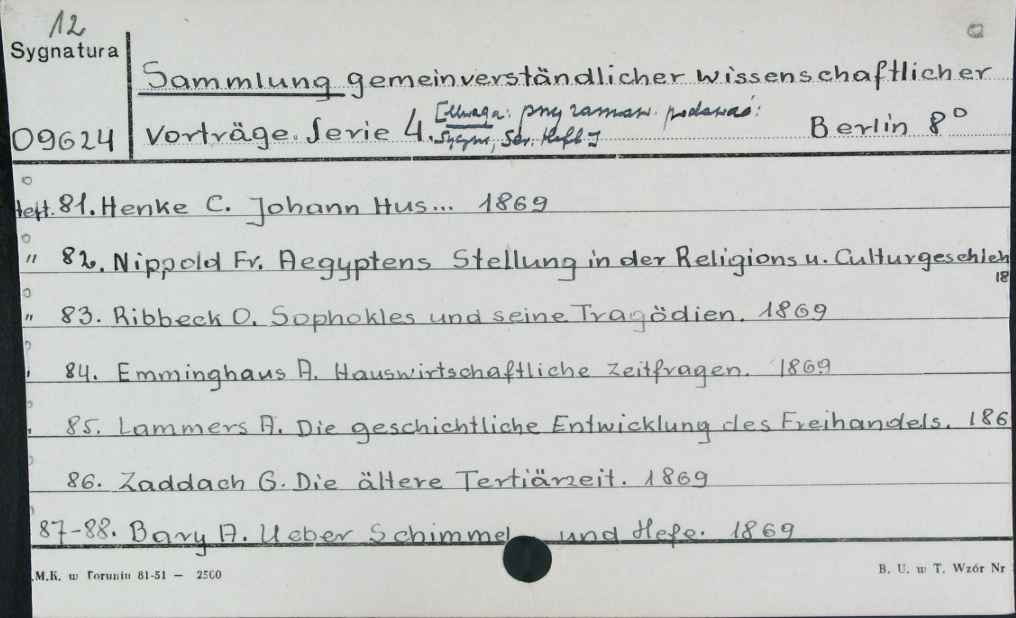 12
Sygnatura
Sammlung gemeinverständlicher wissenschaftlicher
[Uwaga: przy zamaw. podawać:
09624 Vorträge. Serie 4. Sygn., Ser. Heft] Berlin 8°
Heft. 81. Henke C. Johann Hus... 1869
" 82. Nippold Fr. Aegyptens Stellung in der Religions u. Culturgeschich
18
" 83. Ribbeck O. Sophokles und seine Tragödien. 1869
84. Emminghaus A. Hauswirtschaftliche Zeitfragen. 1869
85. Lammers A. Die geschichtliche Entwicklung des Freihandels. 186
86. Zaddach G. Die ältere Tertiärzeit. 1869
87-88. Bary A. Ueber Schimmel und Hefe. 1869
M.K. w Toruniu 81-51 — 2500
B. U. w T. Wzór Nr